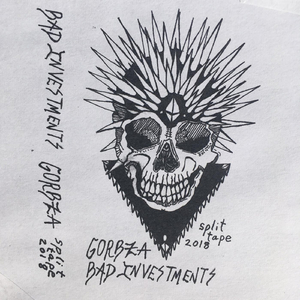 BAD INVESTMENTS GORBZA split tape 2018
split
tape
2018
GORBZA
BAD INVESTMENTS